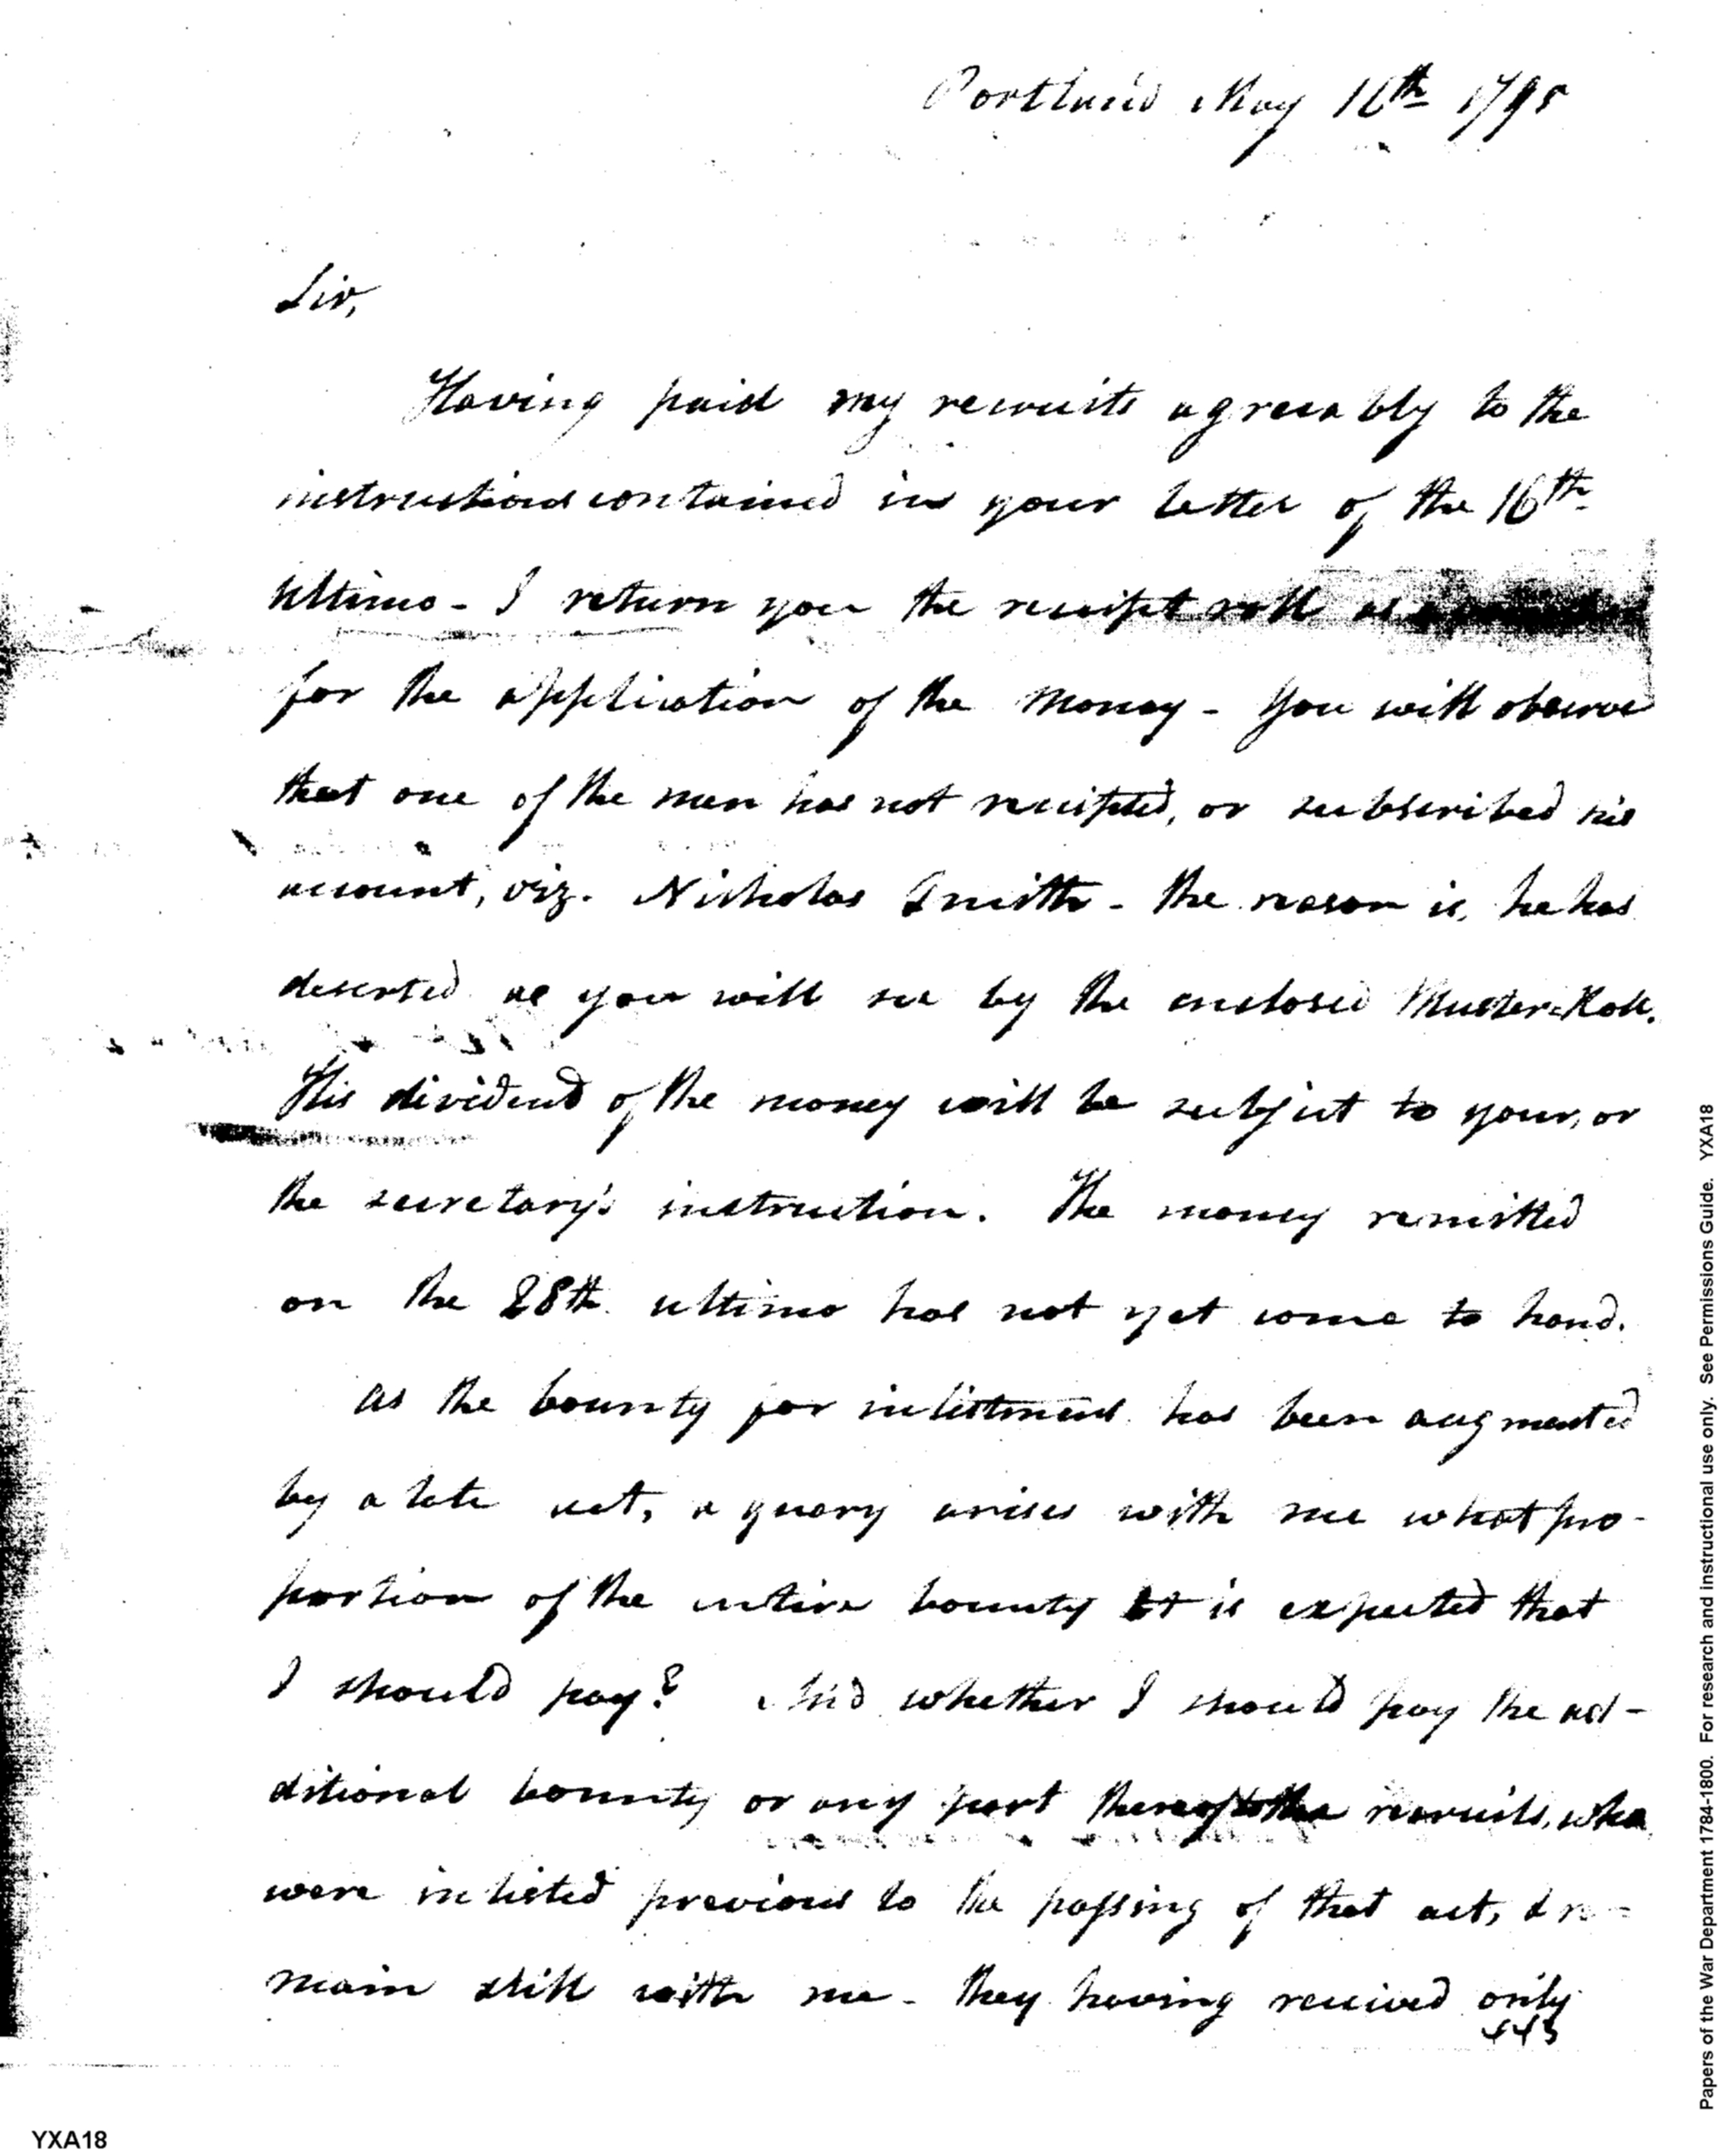 Portland May 16th 1795
Sir,
Having paid my recruits agreeably to the
instructions contained in your letter of the 16th
ultimo - I return you the receipt roll as
for the application of the money - You will observe
that one of the men has not receipted, or subscribed his
account, viz. Nicholas Smith - the reason is, he has
deserted as you will see by the enclosed Muster-Roll.
His dividend of the money will be subject to your, or
the secretary's instruction. The money remitted
on the 28th. ultimo has not yet come to hand.
As the bounty for inlistment has been augmented
by a late act, a query arises with me what pro-
portion of the entire bounty it is expected that
I should pay? And whether I should pay the ad-
ditional bounty or any part thereof to the recruits, who
were inlisted previous to the passing of that act, & re-
main still with me - they having received only
443
YXA18
Papers of the War Department 1784-1800. For research and instructional use only. See Permissions Guide. YXA18